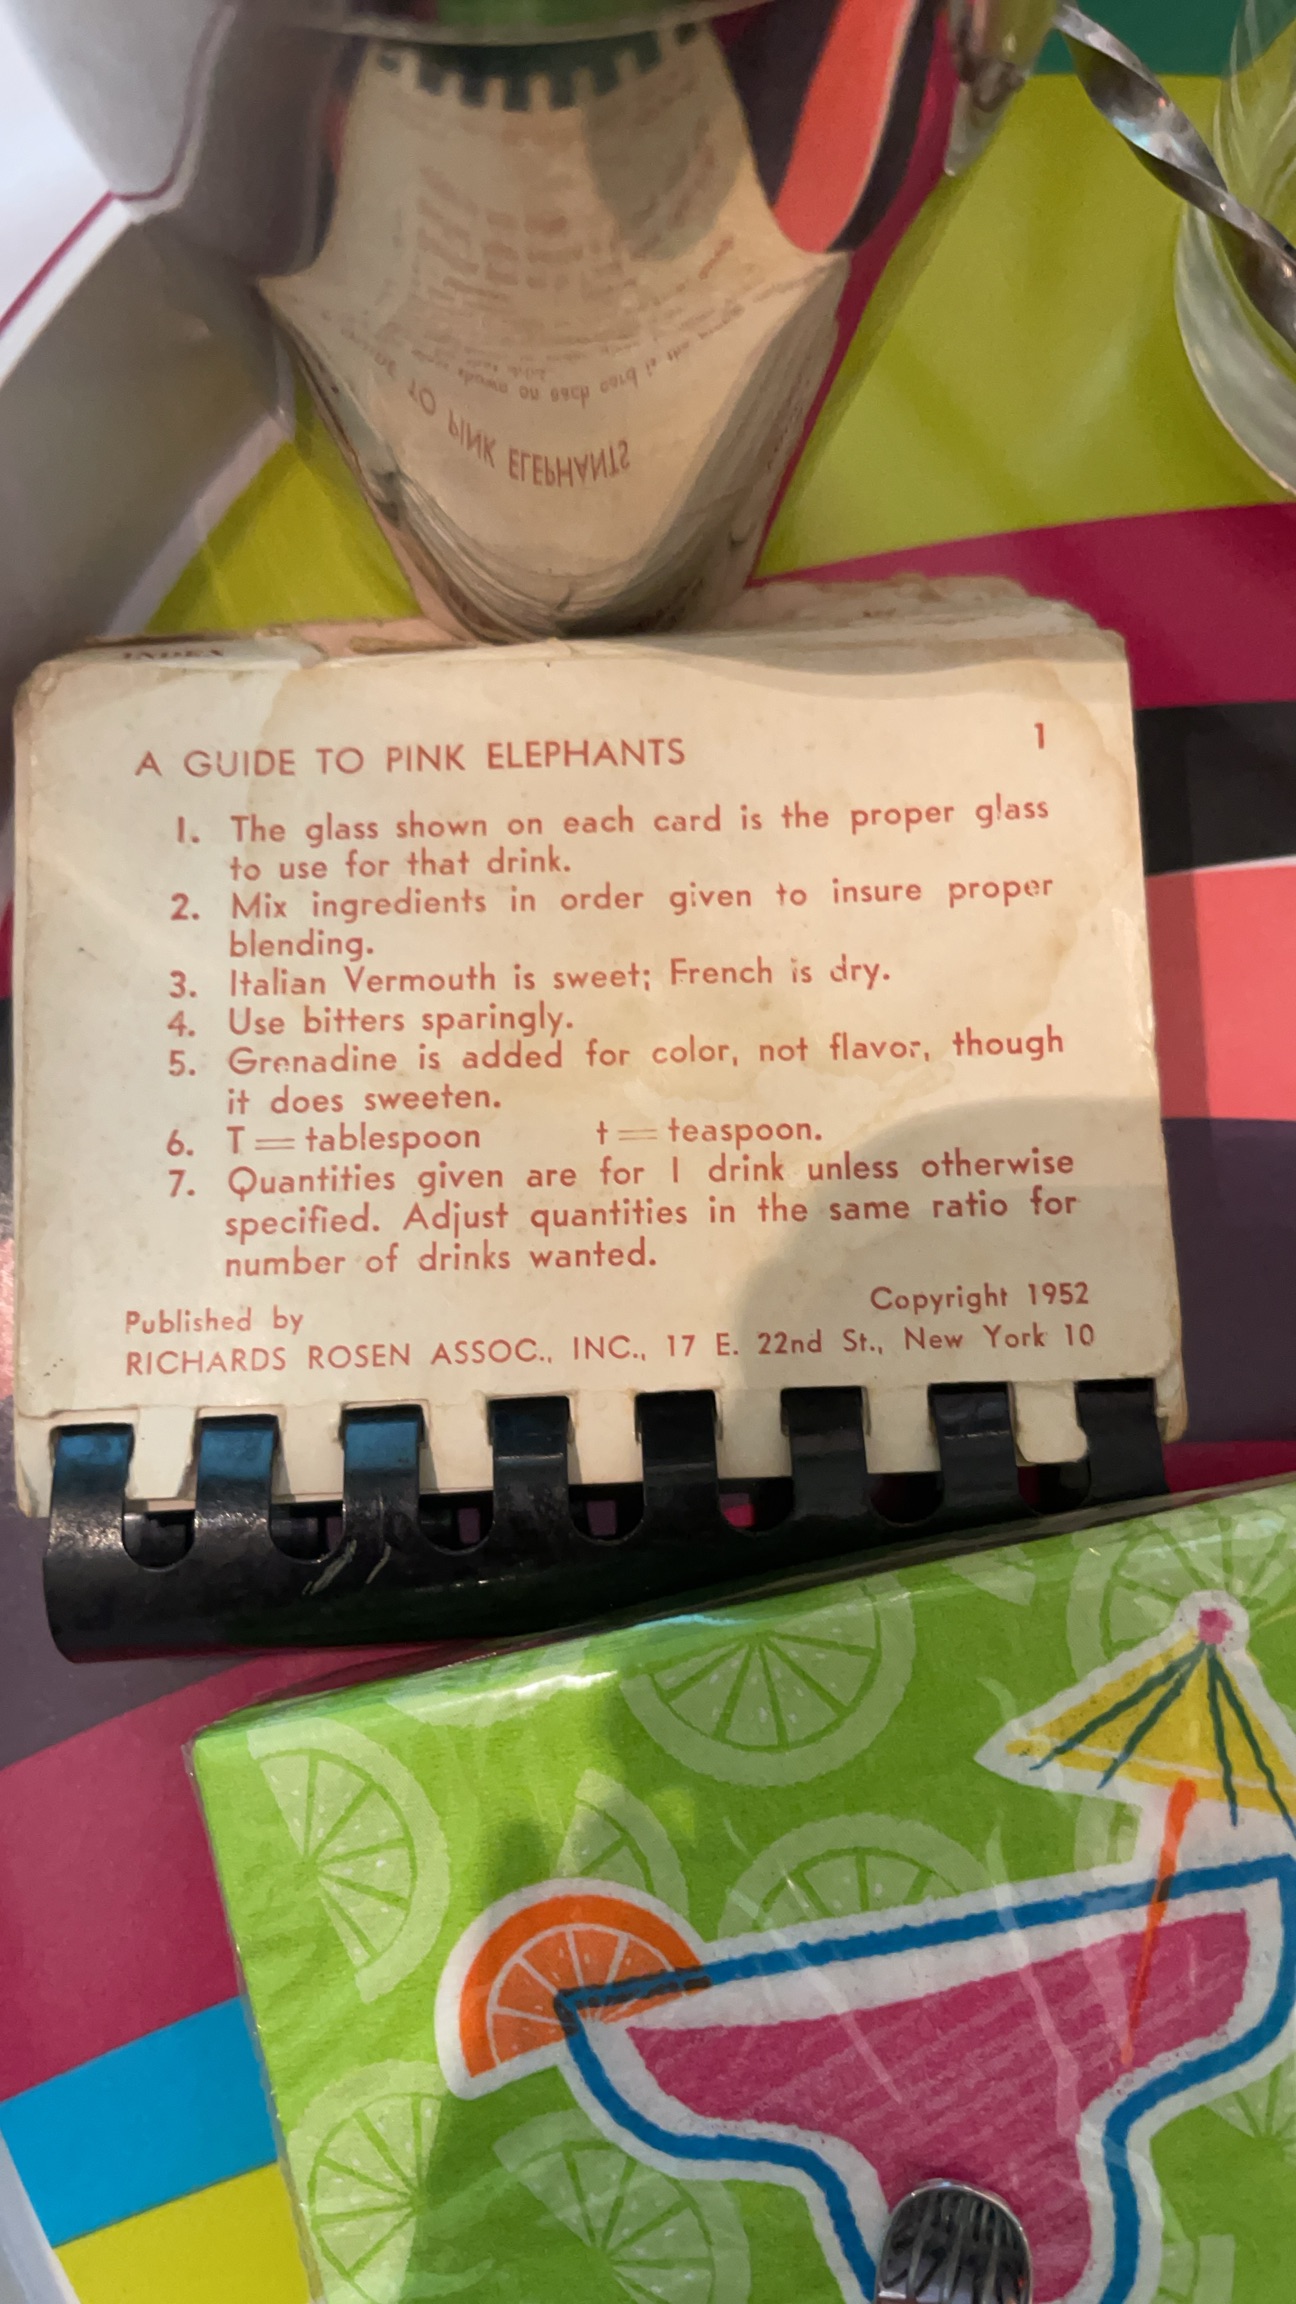 TO PINK ELEPHANTS
INDEX
A GUIDE TO PINK ELEPHANTS 1
1. The glass shown on each card is the proper glass
to use for that drink.
2. Mix ingredients in order given to insure proper
blending.
3. Italian Vermouth is sweet; French is dry.
4. Use bitters sparingly.
5. Grenadine is added for color, not flavor, though
it does sweeten.
6. T = tablespoon t = teaspoon.
7. Quantities given are for 1 drink unless otherwise
specified. Adjust quantities in the same ratio for
number of drinks wanted.
Copyright 1952
Published by
RICHARDS ROSEN ASSOC., INC., 17 E. 22nd St., New York 10